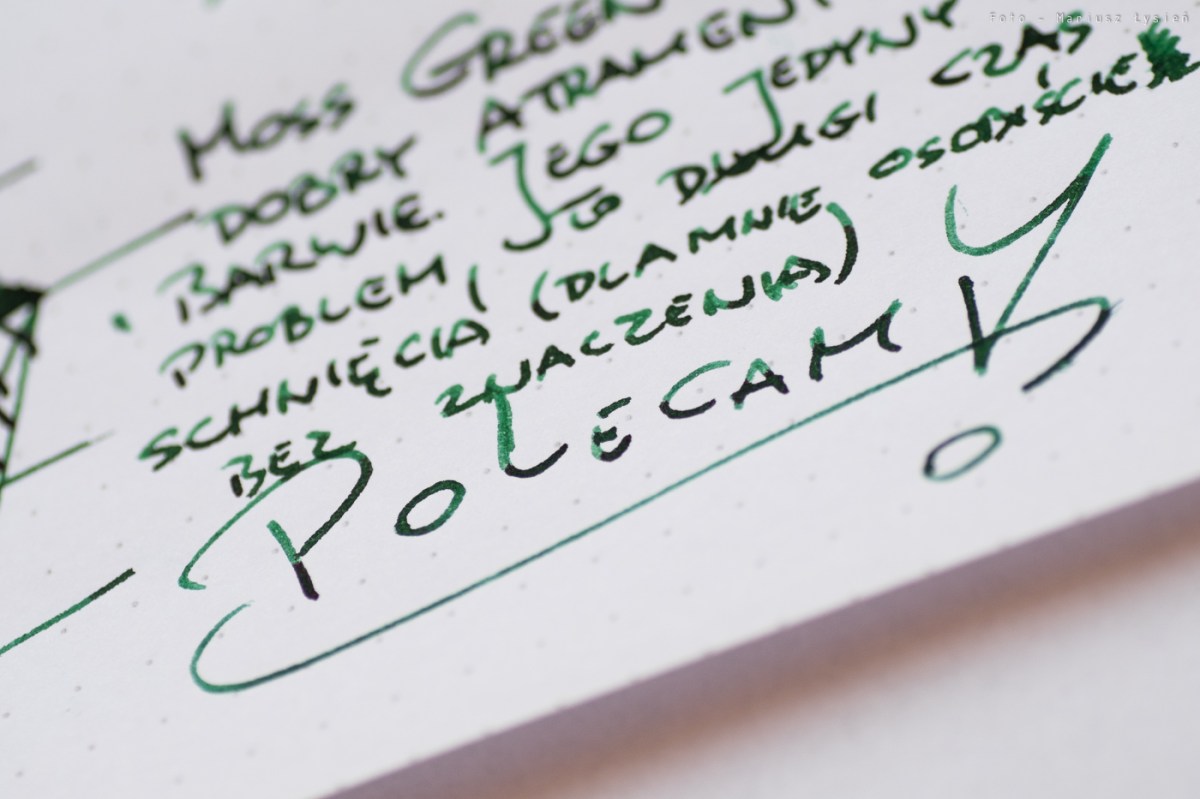 Foto - Mariusz Łysień
Moss GREEN
DOBRY ATRAMENT
BARWIE. JEGO JEDYNY
PROBLEM, TO DŁUGI CZAS
SCHNIĘCIA (DLA MNIE OSOBIŚCIE
BEZ ZNACZENIA)
POLECAM!